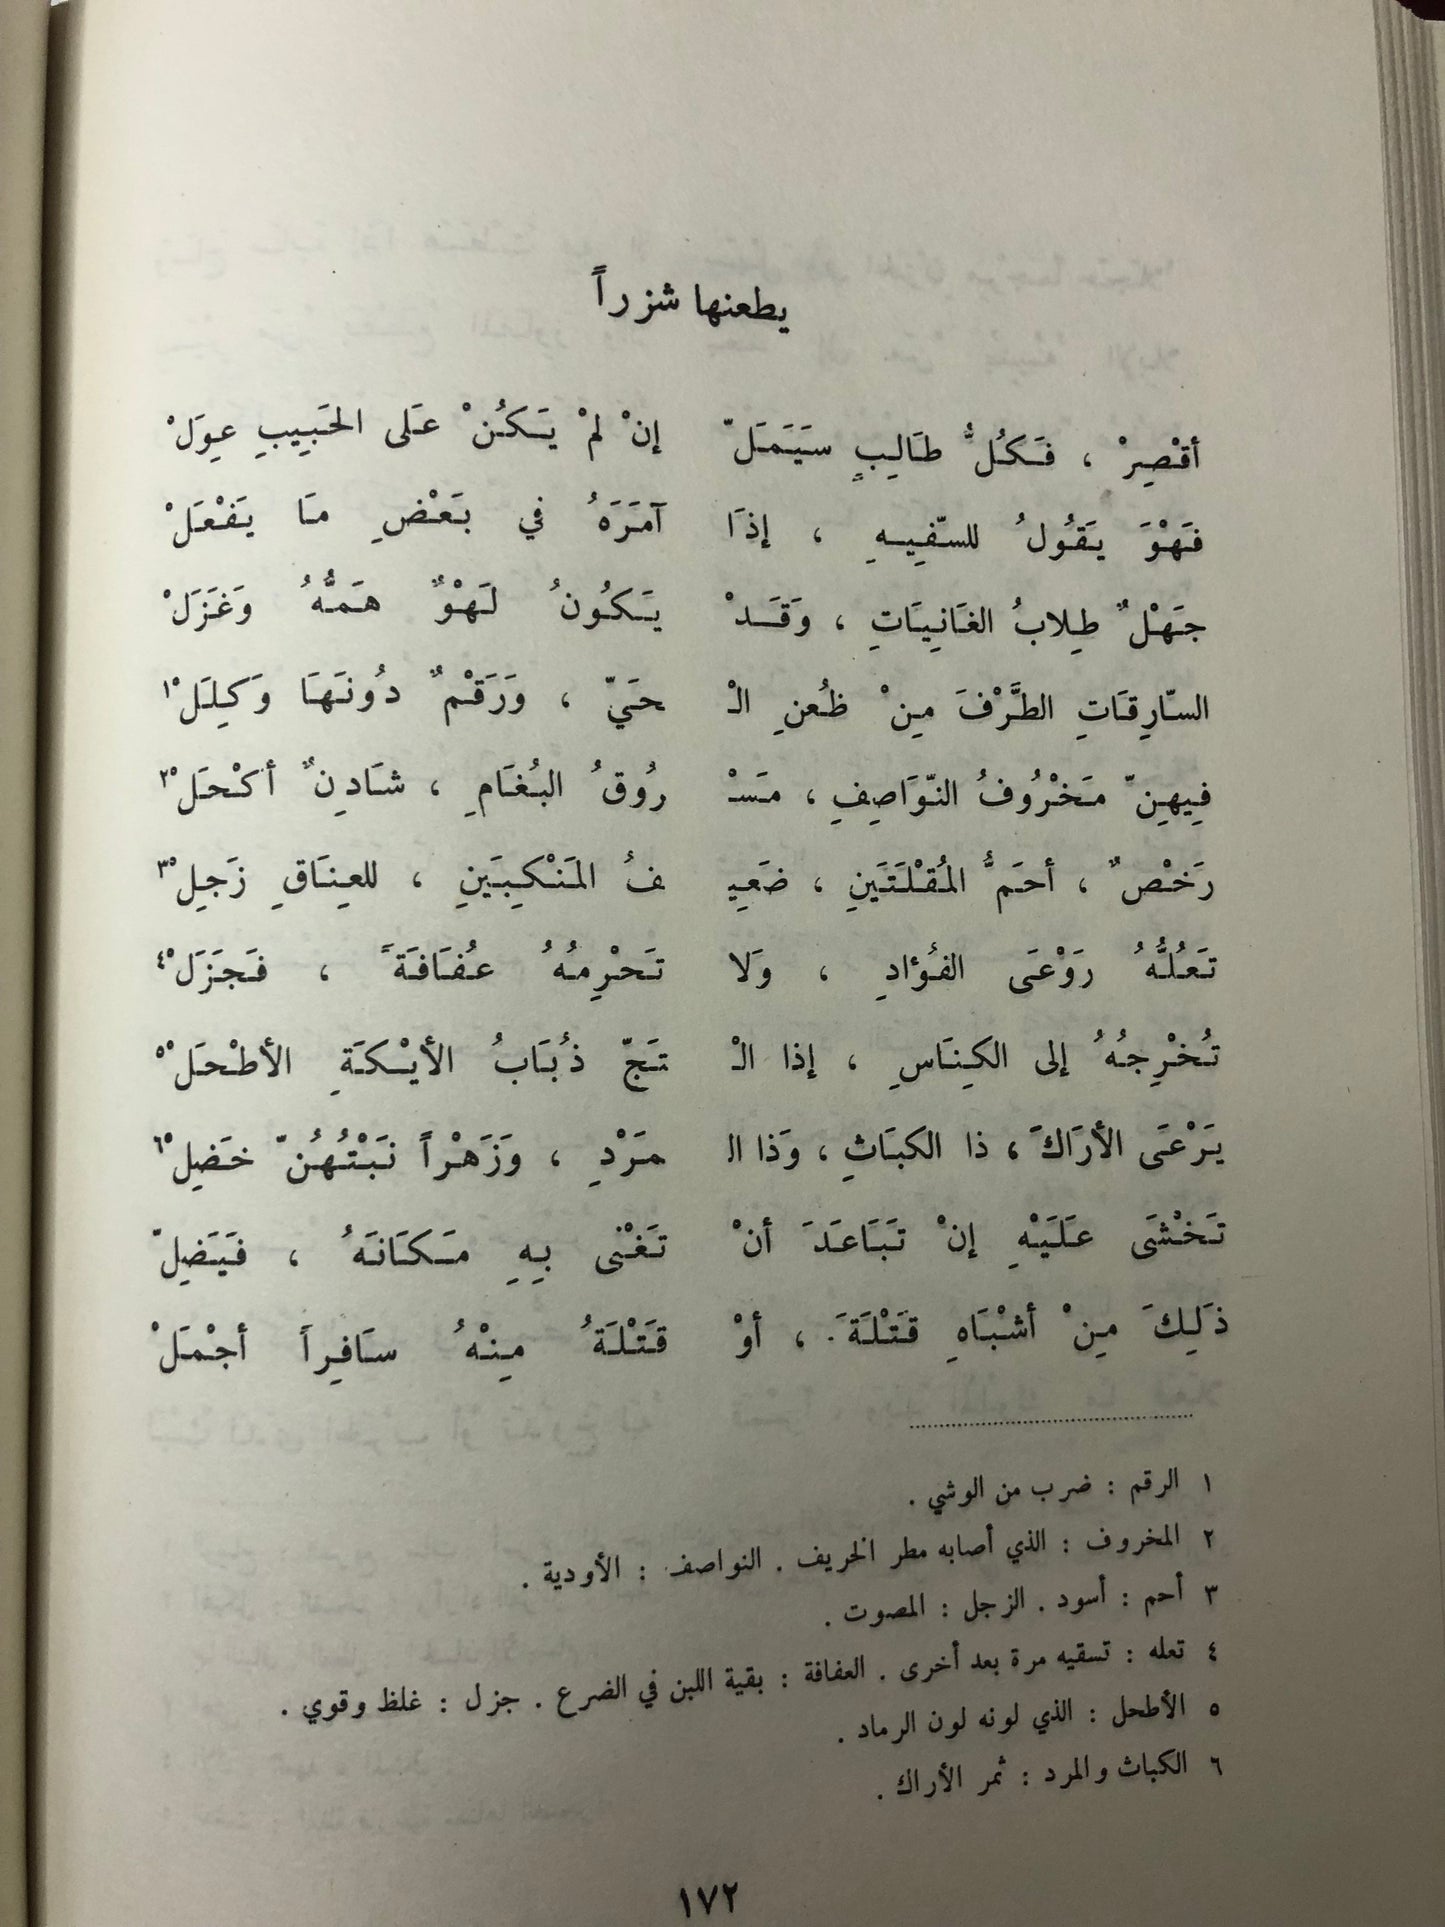 يطعنها شزراً
أقْصِرْ ، فَكُلُّ طَالِبٍ سيَمَلّ إنْ لمْ يَكُنْ عَلى الحَبِيبِ عِوَلْ
فَهْوَ يَقُولُ للسّفِيهِ ، إذَا آمَرَهُ في بَعْضِ مَا يَفْعَلْ
جَهْلٌ طِلابُ الغَانِيَاتِ ، وَقَدْ يَكُونُ لَهْوٌ هَمُّهُ وَغَزَلْ
السّارِقَاتِ الطَّرْفَ مِنْ ظُعنِ الْ حَيّ ، وَرَقْمٌ دُونَهَا وَكِلَلْ١
فِيهِنّ مَخْرُوفُ النّوَاصِفِ ، مَسْ رُوقُ البُغَامِ ، شَادِنٌ أكْحَلْ٢
رَخْصٌ ، أحَمُّ المُقْلَتَينِ ، ضَعِي فُ المَنْكِبَينِ ، للعِنَاقِ زَجِلْ٣
تَعُلُّهُ رَوْعَى الفُؤادِ ، وَلا تَحْرِمُهُ عُفَافَةً ، فَجَزَلْ٤
تُخْرِجُهُ إلى الكِنَاسِ ، إذا الْ تَجّ ذُبَابُ الأيْكَةِ الأطْحَلْ٥
يَرْعَى الأرَاكَ ، ذا الكَبَاثِ ، وَذا ال مَرْدِ ، وَزَهْراً نَبْتُهُنّ خَضِلْ٦
تَخْشَى عَلَيْهِ إنْ تَبَاعَدَ أنْ تَغْنى بِهِ مَكَانَهُ ، فَيَضِلّ
ذَلِكَ مِنْ أشْبَاهِ قَتْلَةَ ، أوْ قَتْلَةُ مِنْهُ سَافِراً أجْمَلْ
١ الرقم : ضرب من الوشي .
٢ المخروف : الذي أصابه مطر الخريف . النواصف : الأودية .
٣ أحم : أسود . الزجل : المصوت .
٤ تعله : تسقيه مرة بعد أخرى . العفافة : بقية اللبن في الضرع . جزل : غلظ وقوي .
٥ الأطحل : الذي لونه لون الرماد .
٦ الكباث والمرد : ثمر الأراك .
١٧٢